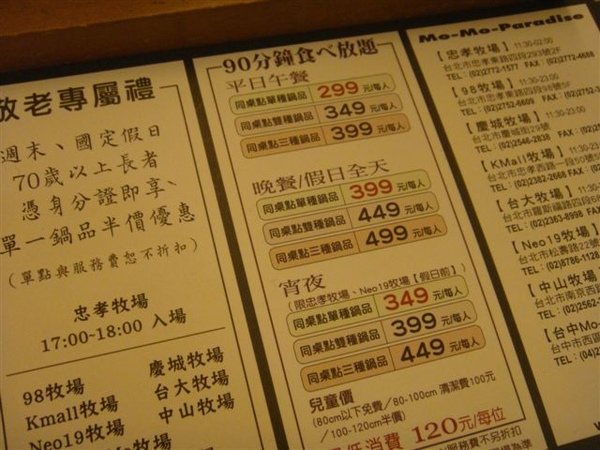 敬老專屬禮
週末、國定假日
70歲以上長者
憑身分證即享、
單一鍋品半價優惠
(單點與服務費恕不折扣)
忠孝牧場
17:00-18:00 入場
98牧場 慶城牧場
Kmall牧場 台大牧場
Neo19牧場 中山牧場
90分鐘食べ放題
平日午餐
同桌點單種鍋品 299元/每人
同桌點雙種鍋品 349元/每人
同桌點三種鍋品 399元/每人
晚餐/假日全天
同桌點單種鍋品 399元/每人
同桌點雙種鍋品 449元/每人
同桌點三種鍋品 499元/每人
宵夜
(限忠孝牧場、Neo19牧場【假日前】)
同桌點單種鍋品 349元/每人
同桌點雙種鍋品 399元/每人
同桌點三種鍋品 449元/每人
兒童價
(80cm以下免費/80-100cm 清潔費100元
/100-120cm半價)
低消費 120元/每位
服務費不另折扣
Mo-Mo-Paradise
【忠孝牧場】11:30-02:00
台北市忠孝東路四段293號2F
TEL：(02)2772-1577 FAX：(02)2772-4688
【98牧場】11:30-23:00
台北市忠孝東路四段98號5F
TEL：(02)2752-6609 FAX：(02)2
【慶城牧場】11:30-23:00
台北市慶城街29號
TEL：(02)2546-2838 FAX：(02)
【KMall牧場】11:30-
台北市忠孝西路一段50號
TEL：(02)2382-2668 FAX
【台大牧場】
台北市羅斯福路四段
TEL：(02)2363-8998
【Neo19牧場】
台北市松壽路22號
TEL：(02)8786-1128
【中山牧場】
台北市南京西路
TEL：(02)2562-
【台中Mo-
台中市西區
TEL：(04)